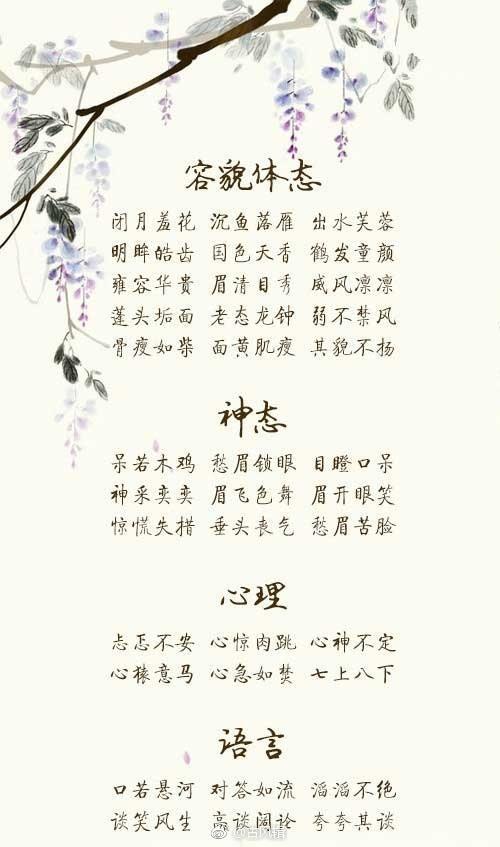 容貌体态
闭月羞花 沉鱼落雁 出水芙蓉
明眸皓齿 国色天香 鹤发童颜
雍容华贵 眉清目秀 威风凛凛
蓬头垢面 老态龙钟 弱不禁风
骨瘦如柴 面黄肌瘦 其貌不扬
神态
呆若木鸡 愁眉锁眼 目瞪口呆
神采奕奕 眉飞色舞 眉开眼笑
惊慌失措 垂头丧气 愁眉苦脸
心理
忐忑不安 心惊肉跳 心神不定
心猿意马 心急如焚 七上八下
语言
口若悬河 对答如流 滔滔不绝
谈笑风生 高谈阔论 夸夸其谈